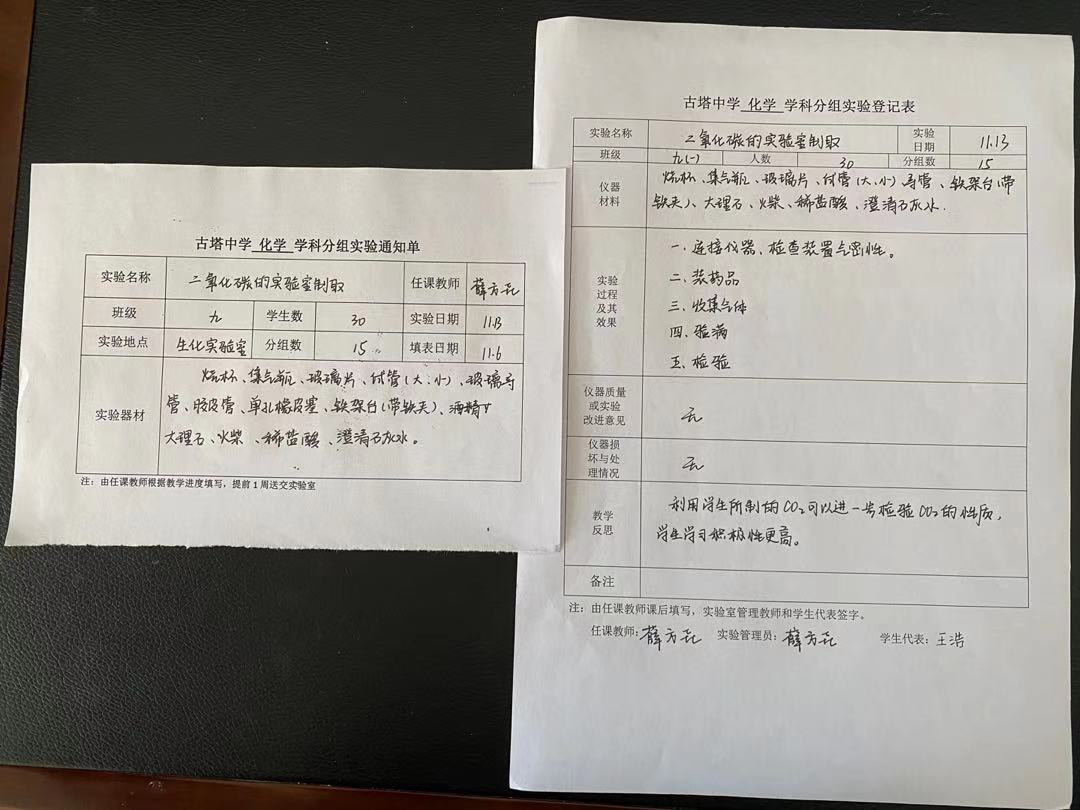 古塔中学 化学 学科分组实验通知单
实验名称 二氧化碳的实验室制取 任课教师
班级 九 学生数 30 实验日期 11.13
实验地点 生化实验室 分组数 15 填表日期 11.6
实验器材
烧杯、集气瓶、玻璃片、试管(大、小)、玻璃导
管、胶皮管、单孔橡皮塞、铁架台(带铁夹)、酒精灯
大理石、火柴、稀盐酸、澄清石灰水。
注：由任课教师根据教学进度填写，提前1周送交实验室
古塔中学 化学 学科分组实验登记表
实验名称 二氧化碳的实验室制取 实验日期 11.13
班级 九(一) 人数 30 分组数 15
仪器材料
烧杯、集气瓶、玻璃片、试管(大、小)导管、铁架台(带
铁夹)、大理石、火柴、稀盐酸、澄清石灰水.
实验过程及其效果
一. 连接仪器、检查装置气密性。
二. 装药品
三. 收集气体
四. 验满
五. 检验
仪器质量或实验改进意见 无
仪器损坏与处理情况 无
教学反思
利用学生所制的CO₂可以进一步检验CO₂的性质,
学生学习积极性更高。
备注
注：由任课教师课后填写，实验室管理教师和学生代表签字。
任课教师: 实验管理员: 学生代表: 王浩